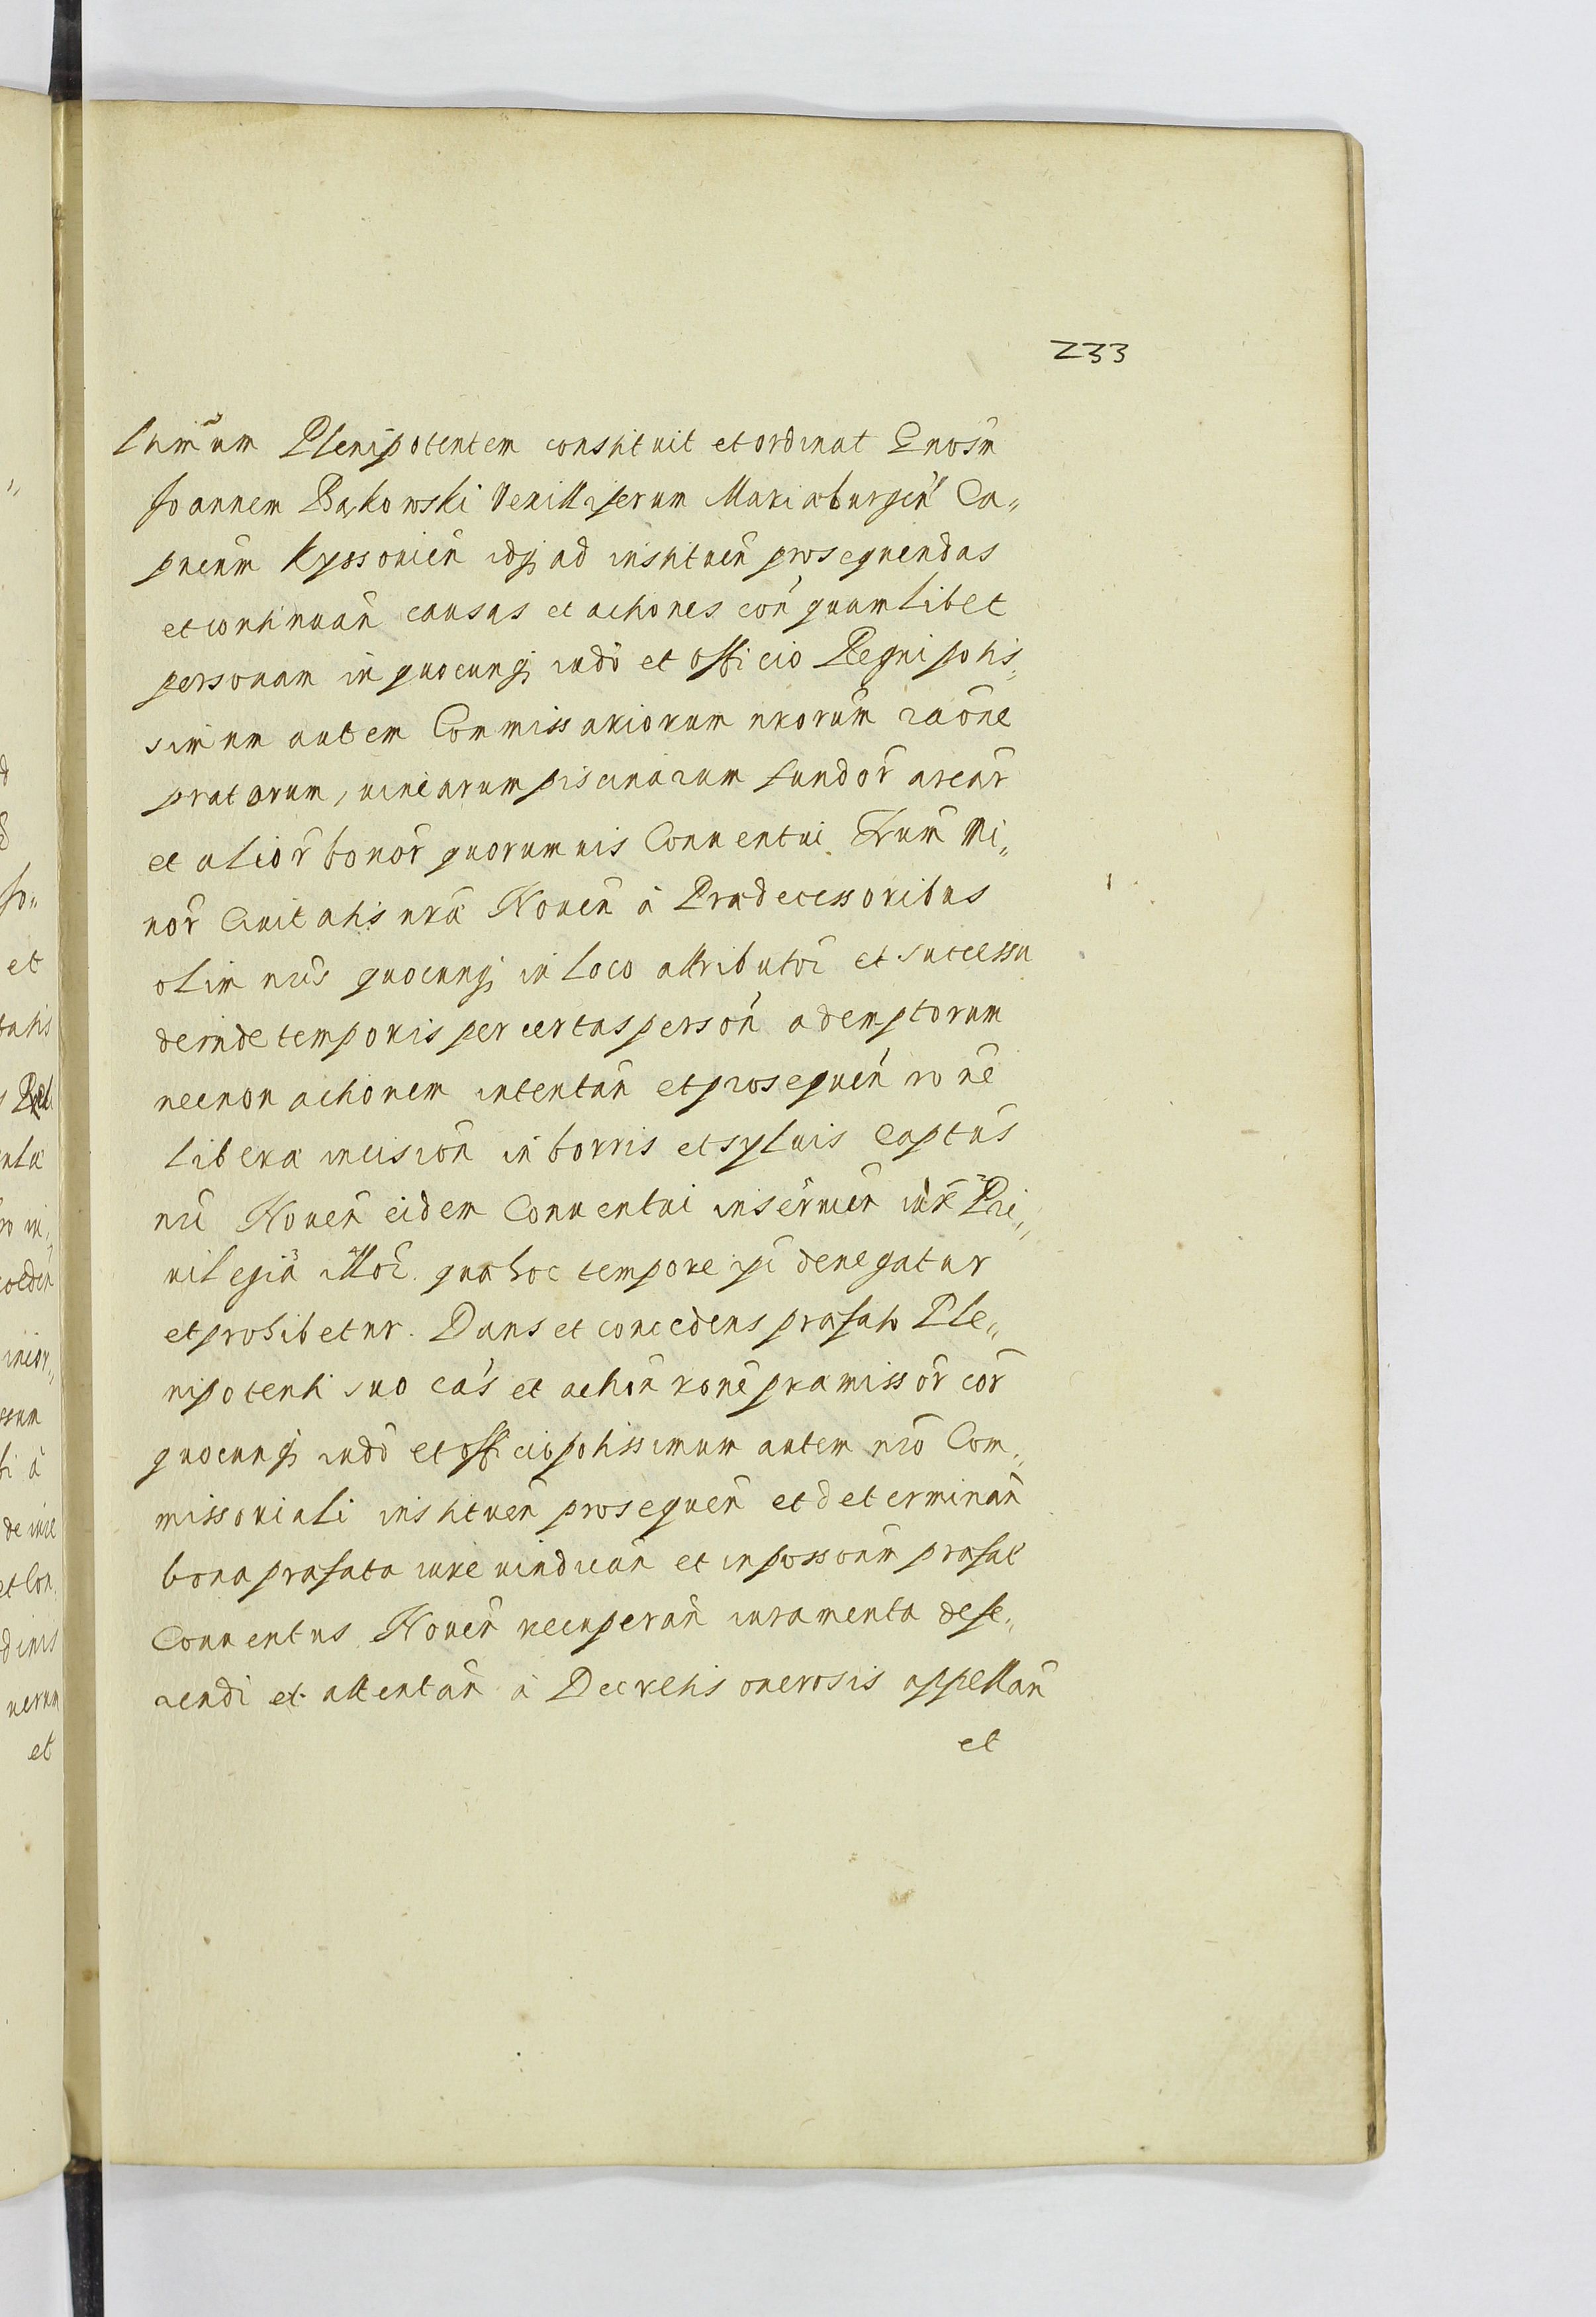 233
ltimum Plenipotentem constituit et ordinat Gnosm̃
Joannem Bąkowski Vexilliferum Mariaeburgen̄ Ca„
pneum̃ Kyssovien̄ idq; ad instituen̄ prosequendas
et continuan̄ causas et actiones con̄ quamlibet
personam in quocunq; iudō et officio Regni potis„
simum autem Commissariorum nrorum̃ raōne
pratorum, vinearum piscinarum fundor̄ arear̄
et alior̄ bonor̄ quorumvis Conventui Frum̃ Mi„
nor̄ Civitatis nrae Noven̄ à Praedecessoribus
olim nr̄is quocunq; in loco attributor̄ et successu
deinde temporis per certas person̄ ademptorum
necnon actionem intentan̄ et prosequen̄ rōne
liberae incision̄ in borris et sylvis Captūs
nr̄i Noven̄ eidem Conventui inservien̄ iurē Pri„
vilegiā illor̄. quae hoc tempore ipī denegatur
et prohibetur. Dans et concedens praefato Ple„
nipotenti suo cas̄ et action̄ ronē praemissor̄ cor̄
quocunq; iudō et officio potissimum autem nrō Com„
missoriali instituen̄ prosequen̄ et determinan̄
bona praefata iure vindican̄ et in possonem̃ praefat̄
Conventus Noven̄ recuperan̄ iuramenta defe„
rendi et attentan̄ à Decretis onerosis appellan̄
et